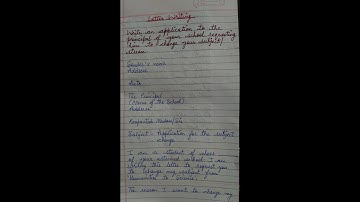 Letter Writing
Write an application to the
principal of your school requesting
him to change your subject/
stream.
Sender's name
Address
Date
The Principal
(Name of the School)
Address
Respected Madam/Sir
Subject - Application for the subject
change
I am a student of class
of your esteemed school. I am
writing this letter to request you
to change my subject from
Humanities to Science.
The reason I want to change my